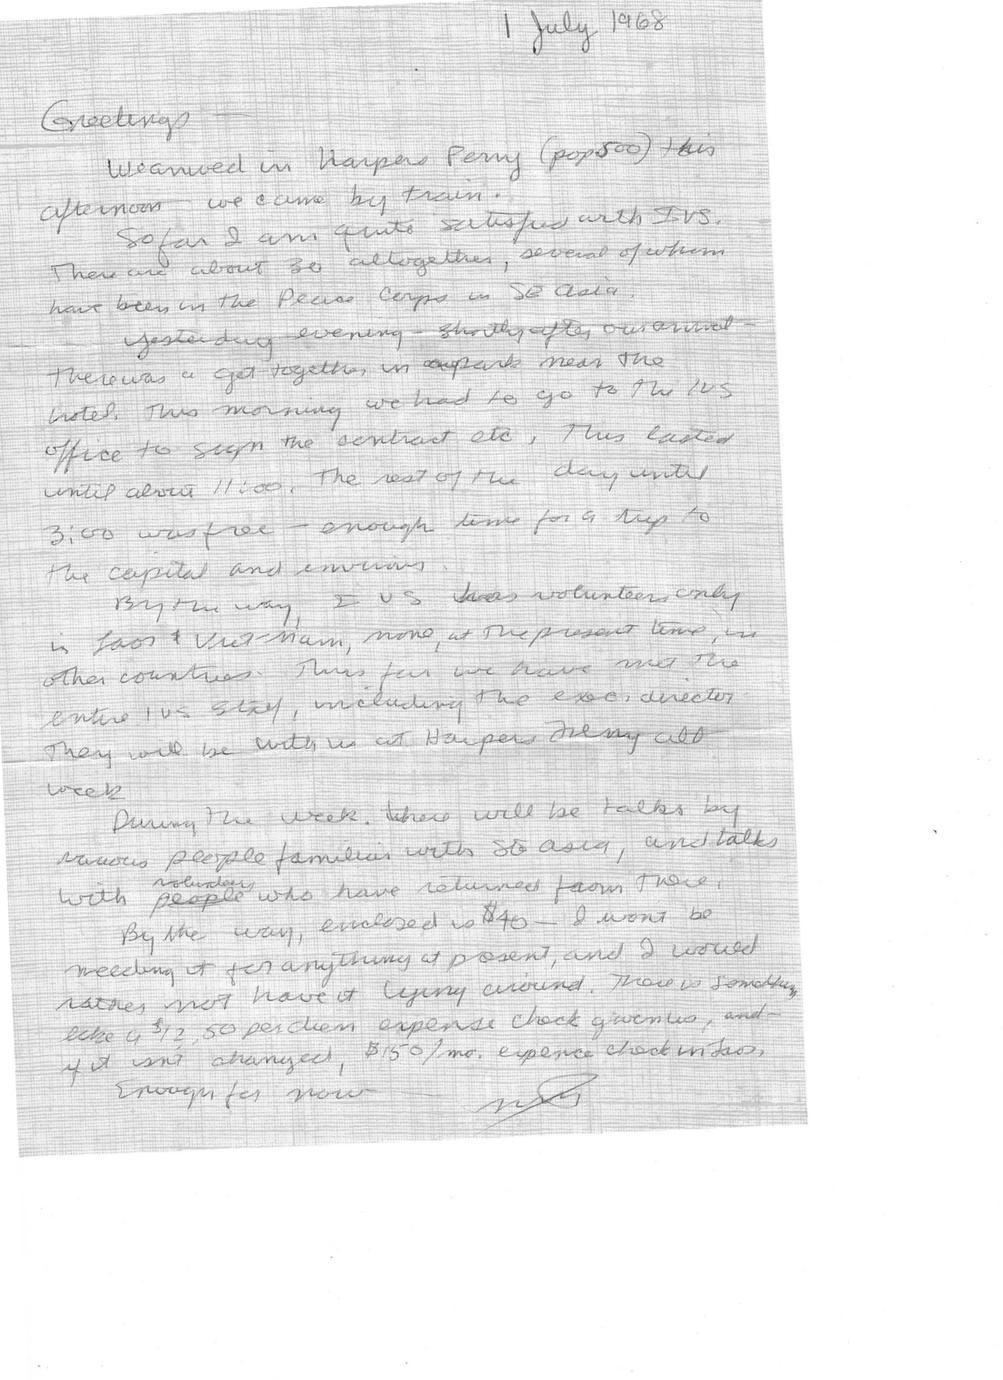 1 July 1968
Greetings —
We arrived in Harpers Ferry (pop 500) this
afternoon — we came by train.
So far I am quite satisfied with IVS.
There are about 30 altogether, several of whom
have been in the Peace Corps in SE Asia.
Yesterday evening — shortly after our arrival —
there was a get together in a park near the
hotel. This morning we had to go to the IVS
office to sign the contract etc. This lasted
until about 11:00. The rest of the day until
3:00 was free — enough time for a trip to
the capital and environs.
By the way, IVS has volunteers only
in Laos & Viet-Nam, none, at the present time, in
other countries. Thus far we have met the
entire IVS staff, including the exec. director.
They will be with us at Harpers Ferry all
week
During the week there will be talks by
various people familiar with SE Asia, and talks
with volunteers who have returned from there.
By the way, enclosed is $40 — I wont be
needing it for anything at present, and I would
rather not have it lying around. There is something
like a $12.50 per diem expense check given us, and —
if it isn't changed, $150/mo. expence check in Laos.
Enough for now —